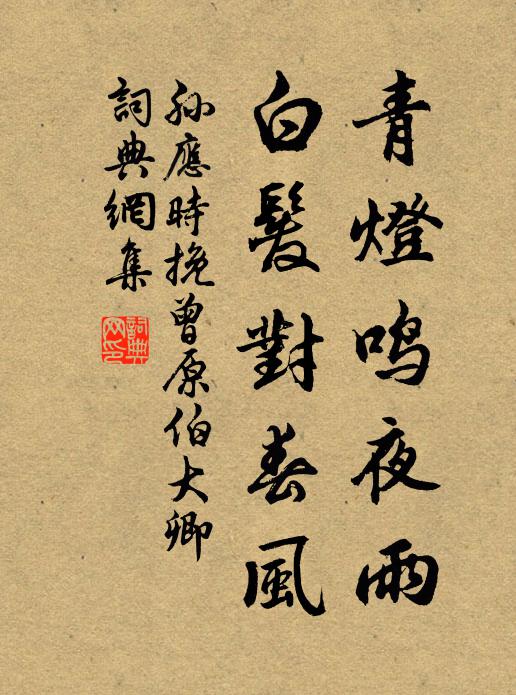 青燈鸣夜雨
白髮對春風
孫應時挽曾原伯大卿
詞典網集
詞典网印